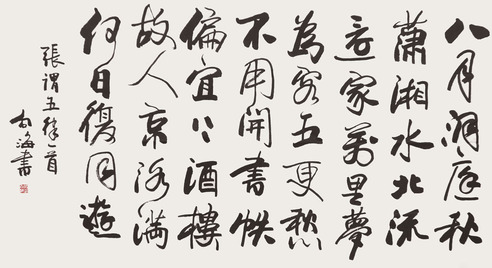 八月洞庭秋
蕭湘水北流
還家萬里夢
為客五更愁
不用開書帙
偏宜上酒樓
故人京洛滿
何日復同遊
張謂五律一首
海書